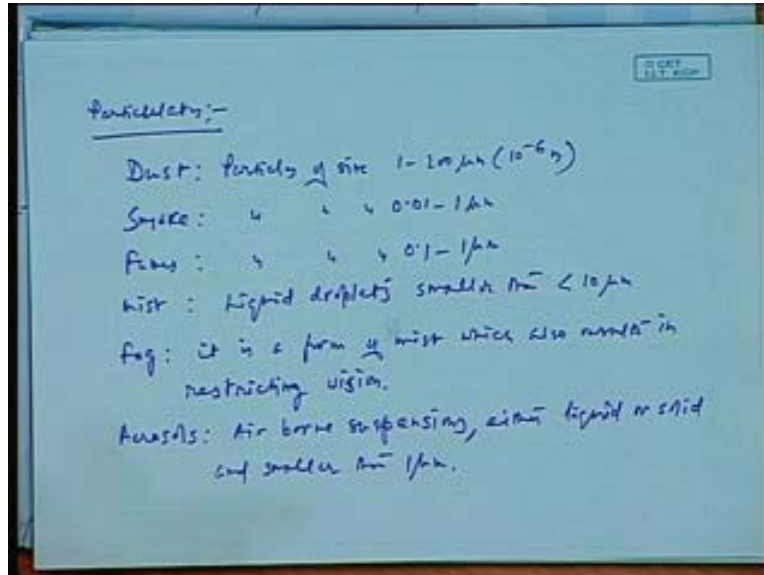 © CET
I.I.T. KGP
Particulates:-
Dust: Particles of size 1-200 µm (10⁻⁶ m)
Smoke: " " " 0.01-1 µm
Fumes: " " " 0.1-1 µm
Mist: Liquid droplets smaller than < 10 µm
Fog: it is a form of mist which also results in
restricting vision.
Aerosols: Air borne suspensions, either liquid or solid
and smaller than 1 µm.